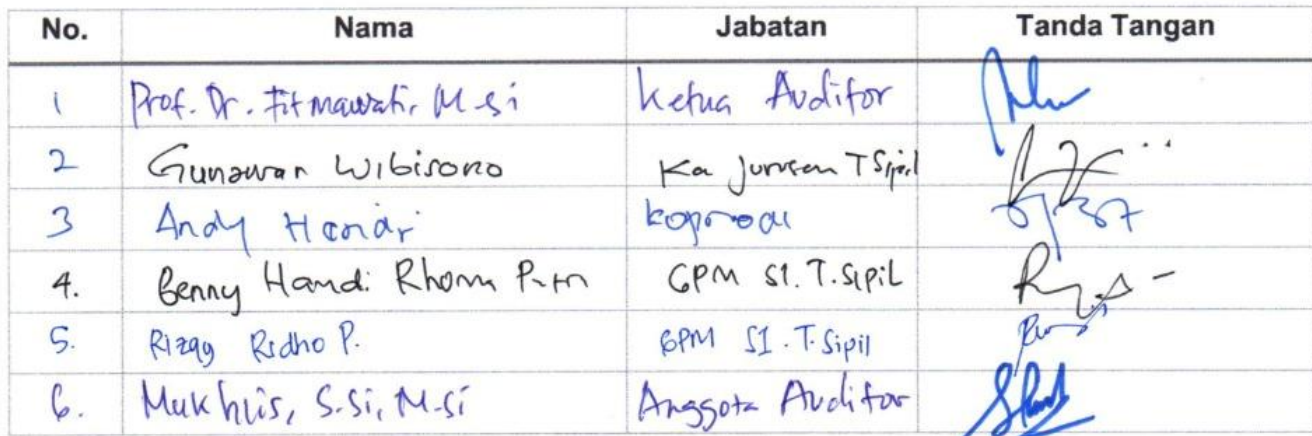 No. Nama Jabatan Tanda Tangan
1 Prof. Dr. Fitmawati, M.si Ketua Auditor
2 Gunawan Wibisono Ka Jurusan T Sipil
3 Andy Hendri koprodi
4. Benny Hamdi Rhoma Putra GPM S1. T. SIPIL
5. Rizqy Ridho P. GPM S1. T. Sipil
6. Mukhlis, S.Si, M.Si Anggota Auditor